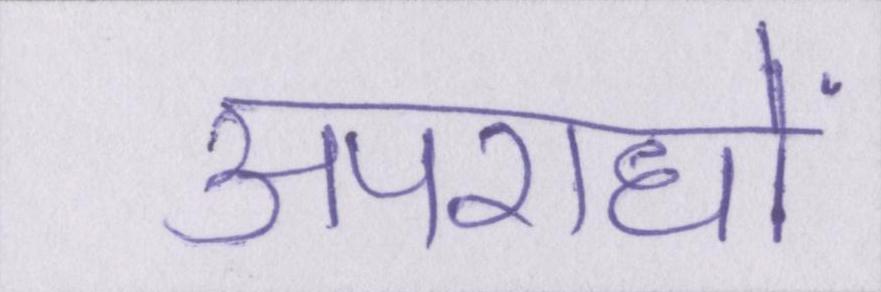 अपराधों